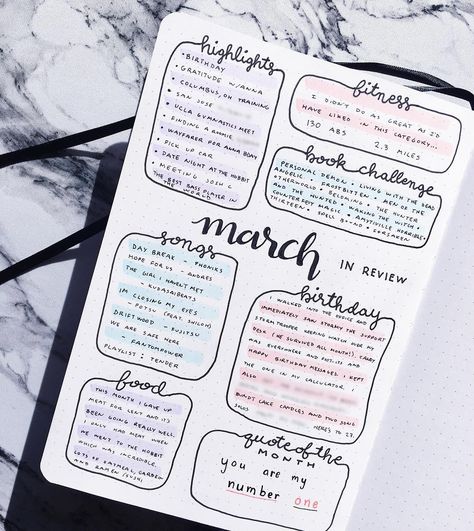 highlights
• BIRTHDAY
• GRATITUDE W/ANNA
• COLUMBUS, OH TRAINING
• SAN JOSE
• UCLA GYMNASTICS MEET
• FINDING A ROOMIE
• WAYFARER FOR ALMA BDAY
• PICK UP CAR
• DATE NIGHT AT THE HOBBIT
• MEETING JOSH C
THE BEST BASS PLAYER IN
THE WORLD
fitness
I DIDN'T DO AS GREAT AS I'D
HAVE LIKED IN THIS CATEGORY...
130 ABS 2.3 MILES
book challenge
PERSONAL DEMON • LIVING WITH THE DEAD
ANGELIC • FROSTBITTEN • MEN OF THE
OTHERWORLD • BELONGING • THE HUNTER
AND THE HUNTED • WAKING THE WITCH
COUNTERFEIT MAGIC • AMITYVILLE HORRIBLE
THIRTEEN • SPELL BOUND •
march
IN REVIEW
songs
DAY BREAK - PHONIKS
HOPE FOR US - ANDRES
THE GIRL I HAVEN'T MET
- KUDASAIBEATS
IM CLOSING MY EYES
- POTSU (FEAT. SHILOH)
DRIFTWOOD - FUJITSU
WE ARE SAFE HERE
- FANTOMPOWER
PLAYLIST: TENDER
birthday
I WALKED INTO THE OFFICE AND
IMMEDIATELY SAW
STORMTROOPER KEEPING WATCH OVER MY
DESK (HE SURVIVED ALL MONTH!). CANDY
WAS EVERYWHERE AND POST-ITS AND
HAPPY BIRTHDAY MESSAGES. I KEPT
THE ONE IN MY CALCULATOR. I
ALSO
BUNDT CAKE CANDLES AND TWO SONG
SOLOS HERES TO 27.
food
THIS MONTH I GAVE UP
MEAT FOR LENT AND IT'S
BEEN GOING REALLY WELL.
I ONLY HAD MEAT WHEN
WE WENT TO THE HOBBIT
WHICH WAS INCREDIBLE.
LOTS OF OATMEAL, GARDEIN
AND RAMEN/SUSHI
quote of the
MONTH
you are my
number one